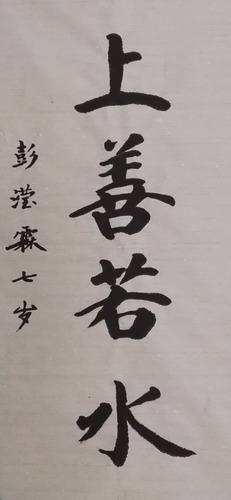 上善若水
彭滢霖七岁